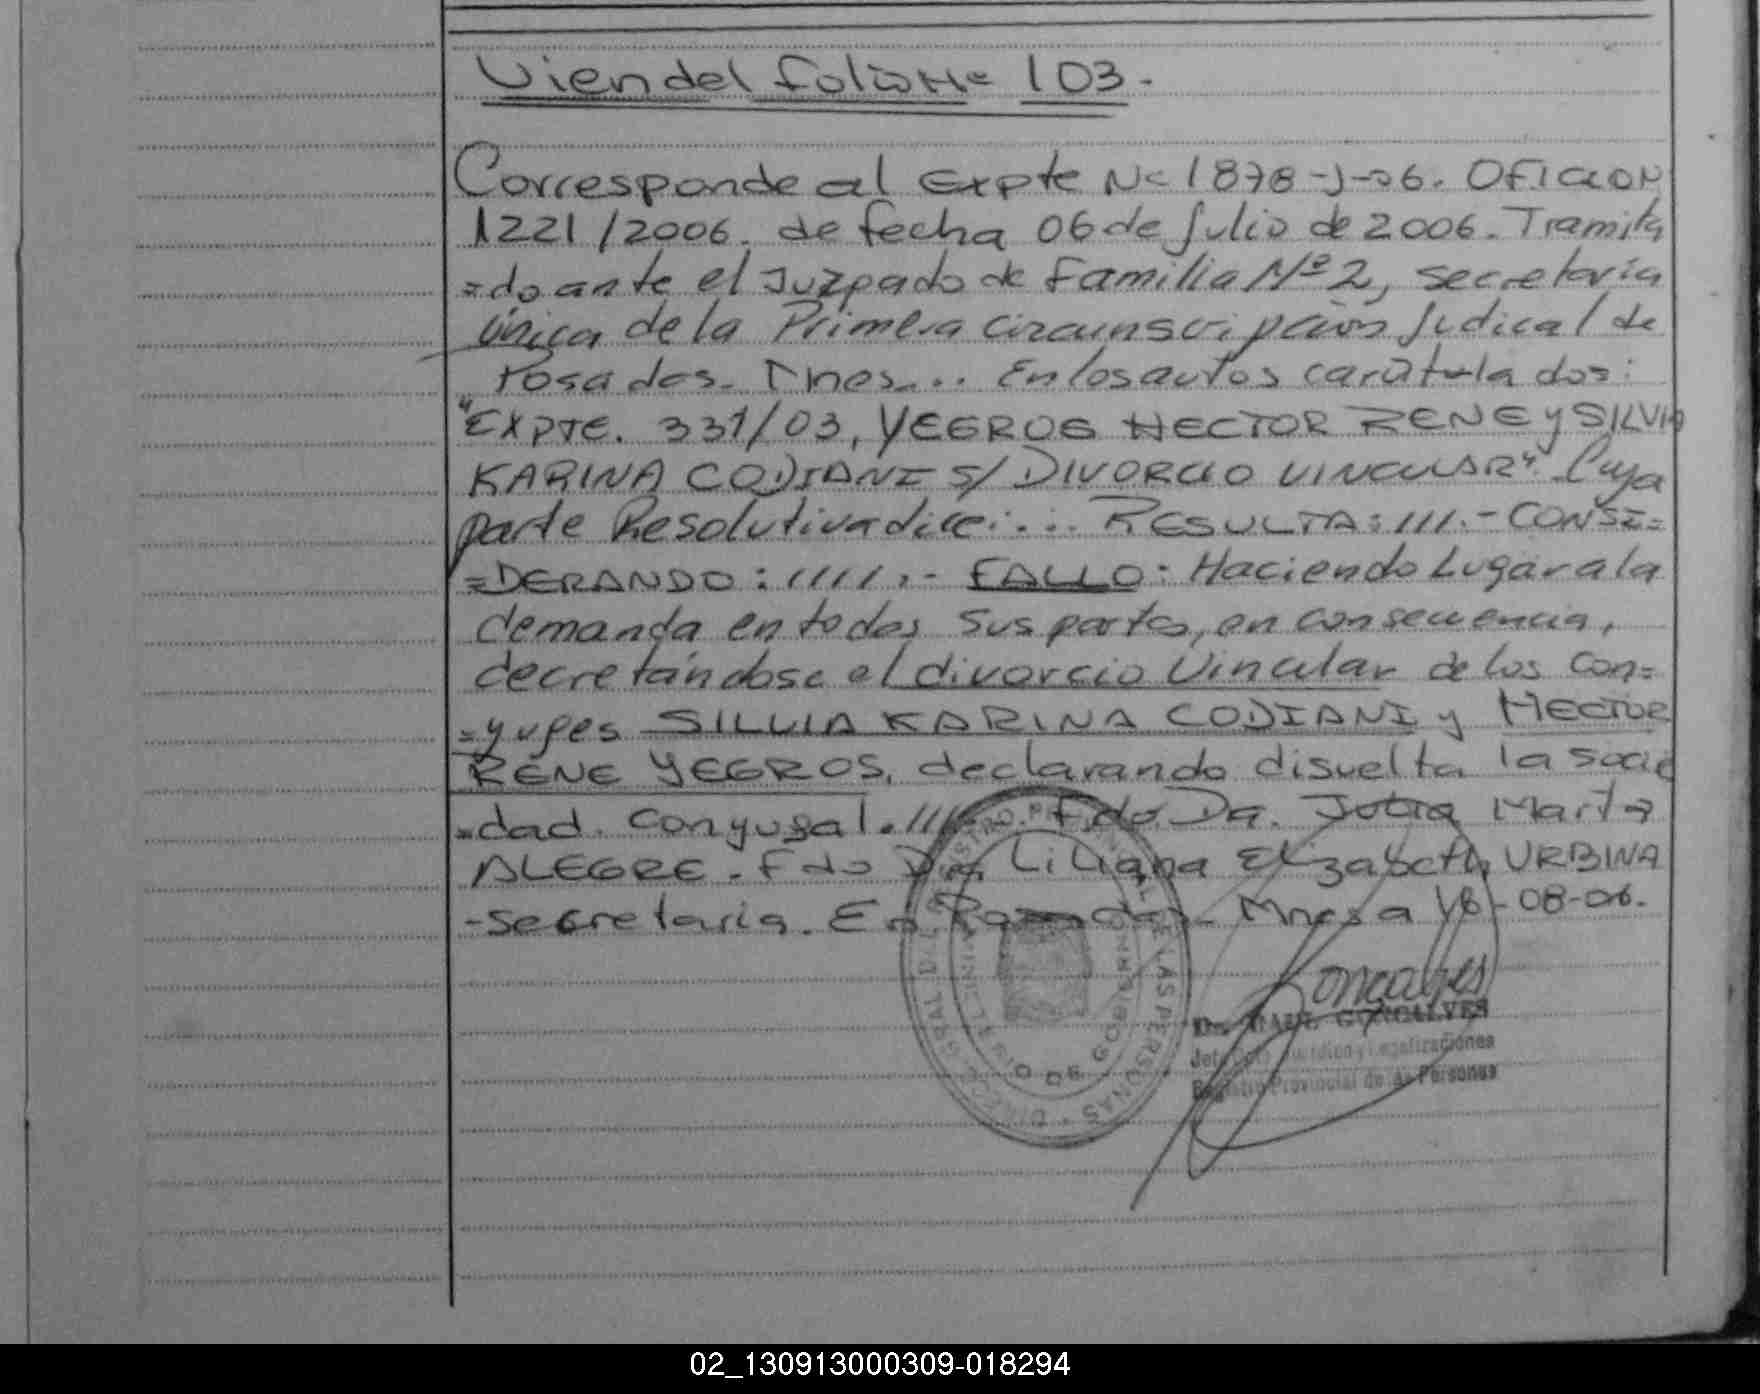 Vien del folio Nº 103.
Corresponde al Expte Nº 1878-J-06. OFICIO N
1221/2006. de fecha 06 de Julio de 2006. Tramita
=do ante el Juzgado de Familia Nº 2, secretaría
única de la Primera circunscripción Judical de
Posadas. Mnes... En los autos carátulados:
"EXPTE. 331/03, YEGROS HECTOR RENE y SILVIA
KARINA CODIANI S/ DIVORCIO VINCULAR". Cuya
parte Resolutiva dice:... RESULTA: ///.- CONSI=
=DERANDO: ////.- FALLO: Haciendo Lugar a la
demanda en todas sus partes, en consecuencia,
decretándose el divorcio Vincular de los con=
=yuges SILVIA KARINA CODIANI y HECTOR
RENE YEGROS, declarando disuelta la socie
=dad conyugal. //// Fdo. Dra. Marta
ALEGRE. Fdo Dra Liliana Elizabeth URBINA
-secretaria. En Posadas- Mnes a 18-08-06.
Goncalves
Dr. RAUL GONCALVES
Jefe Dpto Jurídico y Legalizaciones
Registro Provincial de las Personas
02_130913000309-018294